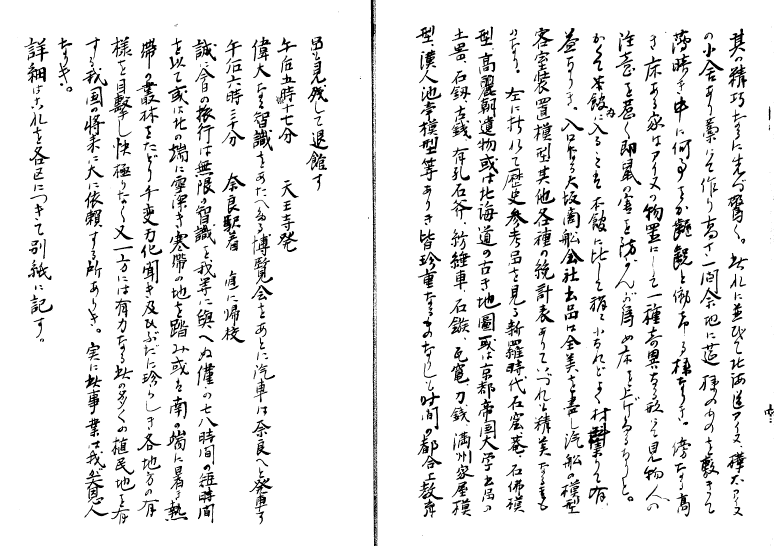 其の精巧なるに先づ驚く。此れに並びて北海道アイヌ、樺太アイヌ
の小舎あり藁にて作り高さ一間余地に莚様のものを敷きて
薄暗き中に何事をか齷齪と働き居る様なりき。傍なる高
き床ある家はアイヌの物置にして一種奇異なる形にて見物人の
注意を惹く即鼠の害を防がんが為め床を上げあるなりと。
かくて本館に入る
材料集りて有
益なりき。入口なる大阪商船会社出品は全美を尽し汽船の模型
客室装置模型其他各種の統計表ありていづれも精美なるも
のなり。左に折れて歴史参考品を見る新羅時代石窟菴石佛模
型、高麗朝遺物或は北海道の古き地圖或は京都帝国大学出品の
土器、石釼、古銭、有孔石斧、紡錘車、石鏃、瓦甕、刀銭、満州家屋模
型、漢人池亭模型等ありき皆珍重なるものなりしも時間の都合上数多
品を見残して退館す
午后五時十七分　天王寺発
偉大なる智識をあたへたる博覧会をあとに汽車は奈良へと発車す
午后六時三十分　奈良駅着　直に帰校
誠に今日の旅行は無限の智識を我等に與へぬ僅の七八時間の短時間
を以て或は北の端に雪深き寒帯の地を踏み或は南の端に暑き熱
帯の叢林をたどり千変万化聞き及びぶだに珍らしき各地方の有
様を目撃し快極りなく又一方には有力なる此の多くの植民地を有
する我国の将来に大に依頼する所ありき。実に此事業は我々恩人
なりき。
詳細はこれを各区につきて別紙に記す。